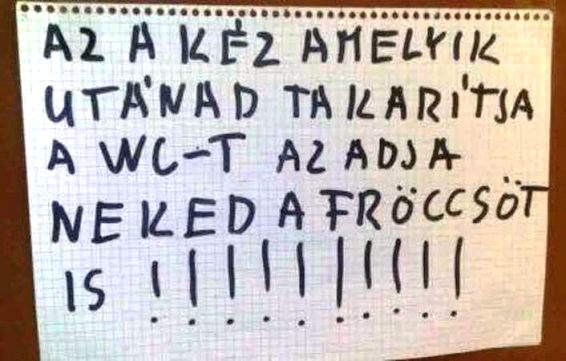 AZ A KÉZ AMELYIK
UTÁNAD TAKARÍTJA
A WC-T AZ ADJA
NEKED A FRÖCCSÖT
IS !!!!!!!!!!